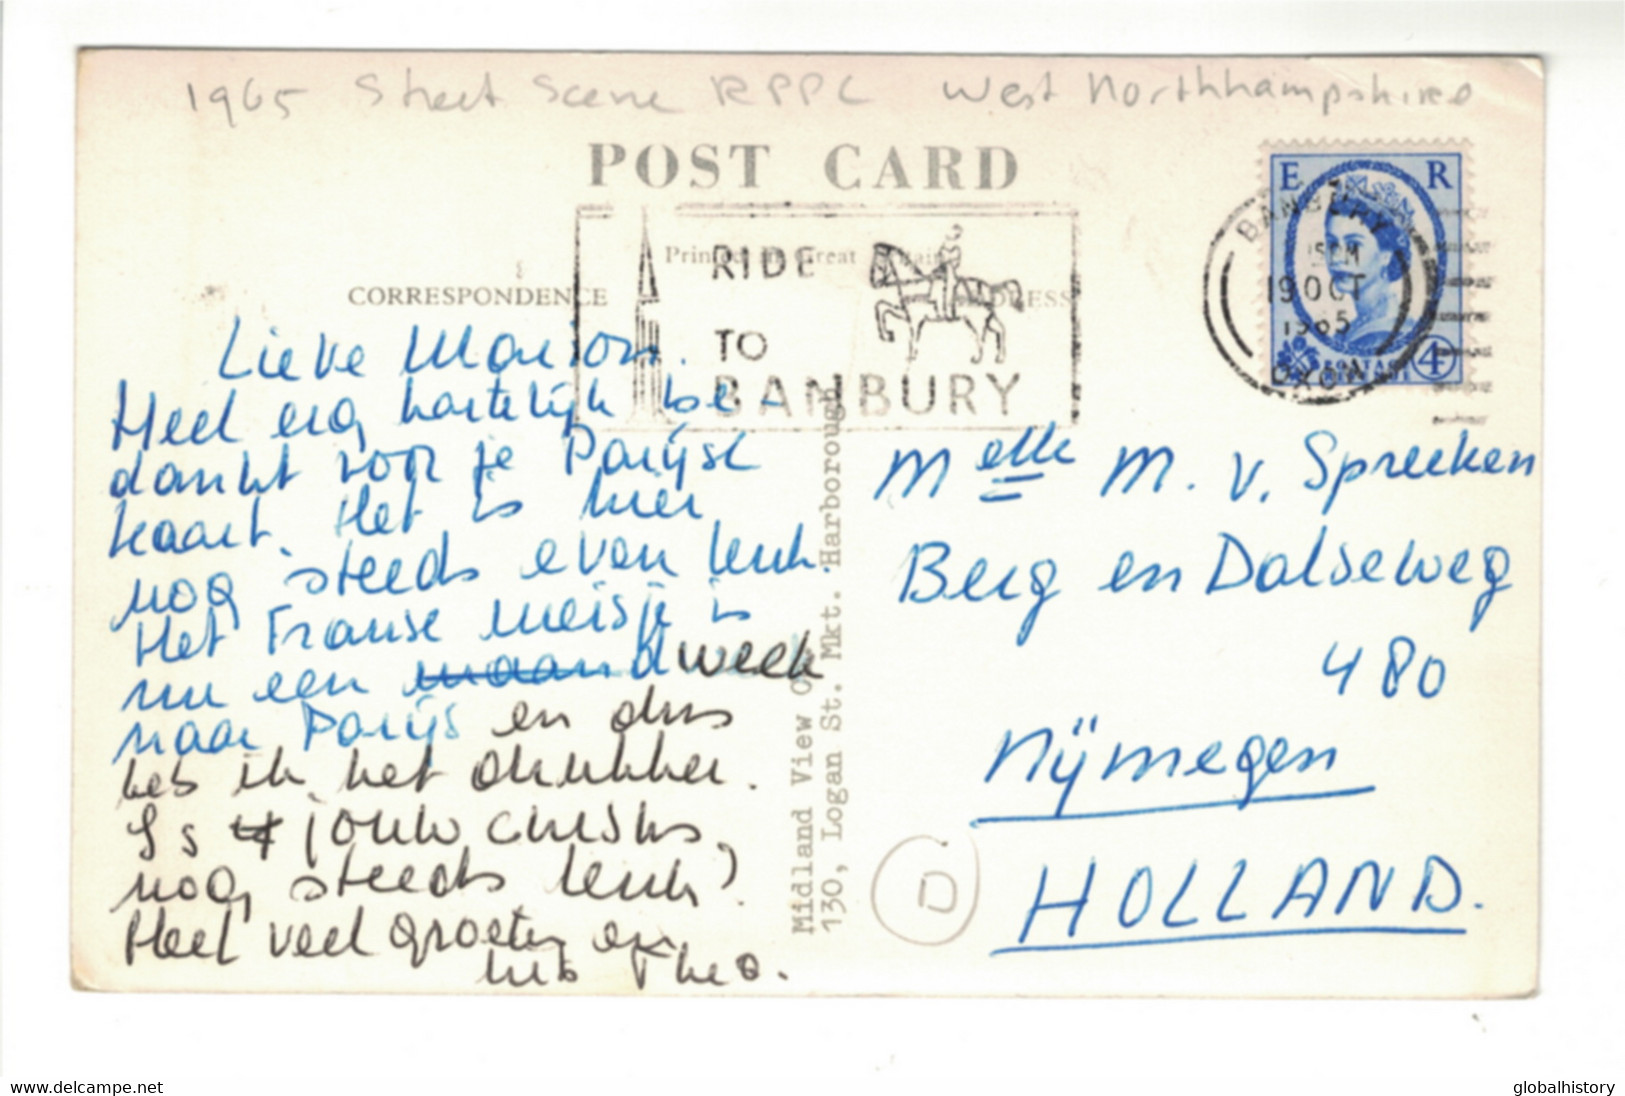 1965 Street Scene RPPC West Northhampshire
POST CARD
Printed in Great Britain
CORRESPONDENCE
ADDRESS
RIDE
TO
BANBURY
E R
BANBURY
15PM
19 OCT
1965
OXON
POSTAGE
4D
Lieve Marion.
Heel erg hartelijk be-
dankt voor je Parijse
kaart. Het is hier
nog steeds even leuk.
Het Franse meisje is
nu een maand week
naar Parijs en dus
heb ik het drukker.
Is jouw cursus
nog steeds leuk?
Heel veel groeten en
Theo.
Midland View
130, Logan St. Mkt. Harborough
Melle M. v. Spreeken
Berg en Dalseweg
480
Nijmegen
HOLLAND.
D
www.delcampe.net
globalhistory